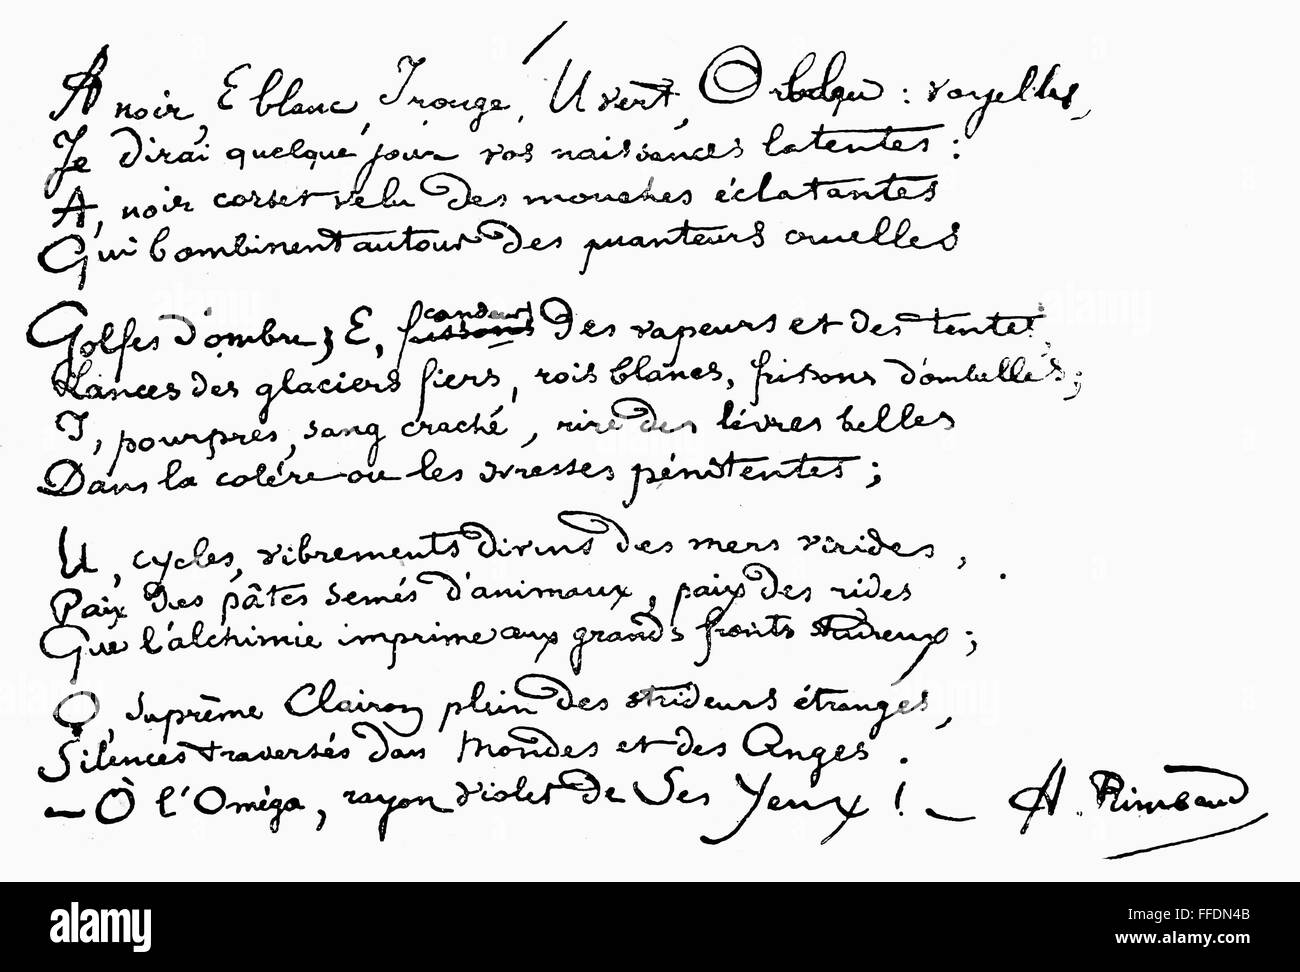 A noir, E blanc, I rouge, U vert, O bleu : voyelles,
Je dirai quelque jour vos naissances latentes :
A, noir corset velu des mouches éclatantes
Qui bombinent autour des puanteurs cruelles
candeurs
Golfes d'ombre ; E, frissons des vapeurs et des tentes,
Lances des glaciers fiers, rois blancs, frissons d'ombelles ;
I, pourpres, sang craché, rire des lèvres belles
Dans la colère ou les ivresses pénitentes ;
U, cycles, vibrements divins des mers virides,
Paix des pâtis semés d'animaux, paix des rides
Que l'alchimie imprime aux grands fronts studieux ;
O, suprême Clairon plein des strideurs étranges,
Silences traversés des Mondes et des Anges.
— Ô l'Oméga, rayon violet de Ses Yeux ! —
A. Rimbaud
alamy
Image ID: FFDN4B
www.alamy.com